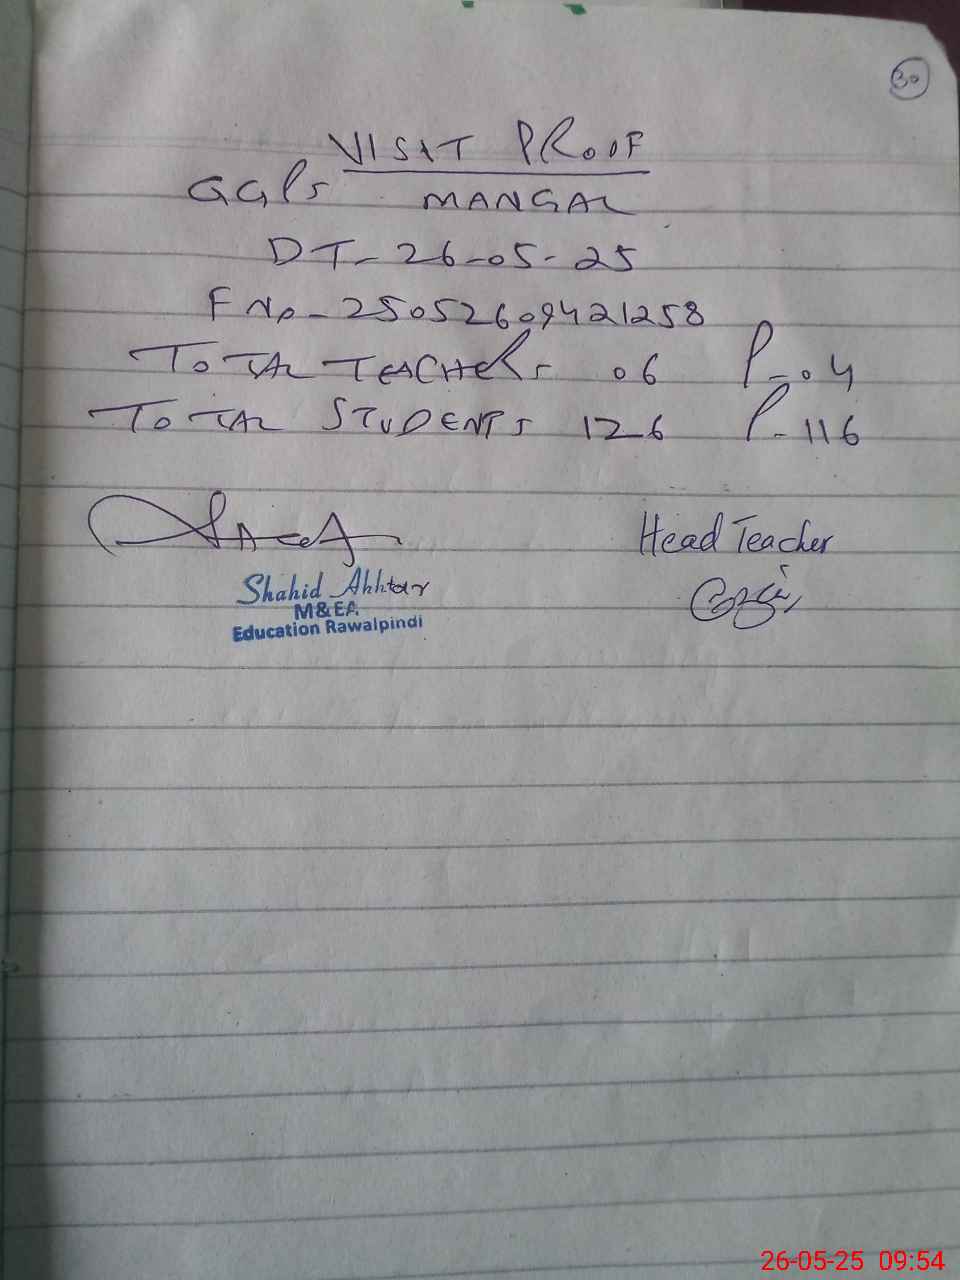 30
VISIT PROOF
GGPS MANGAL
DT- 26-05-25
F No- 25052609421258
TOTAL TEACHERS 06 P-04
TOTAL STUDENTS 126 P-116
Head Teacher
Shahid Akhtar
M&EA
Education Rawalpindi
26-05-25 09:54